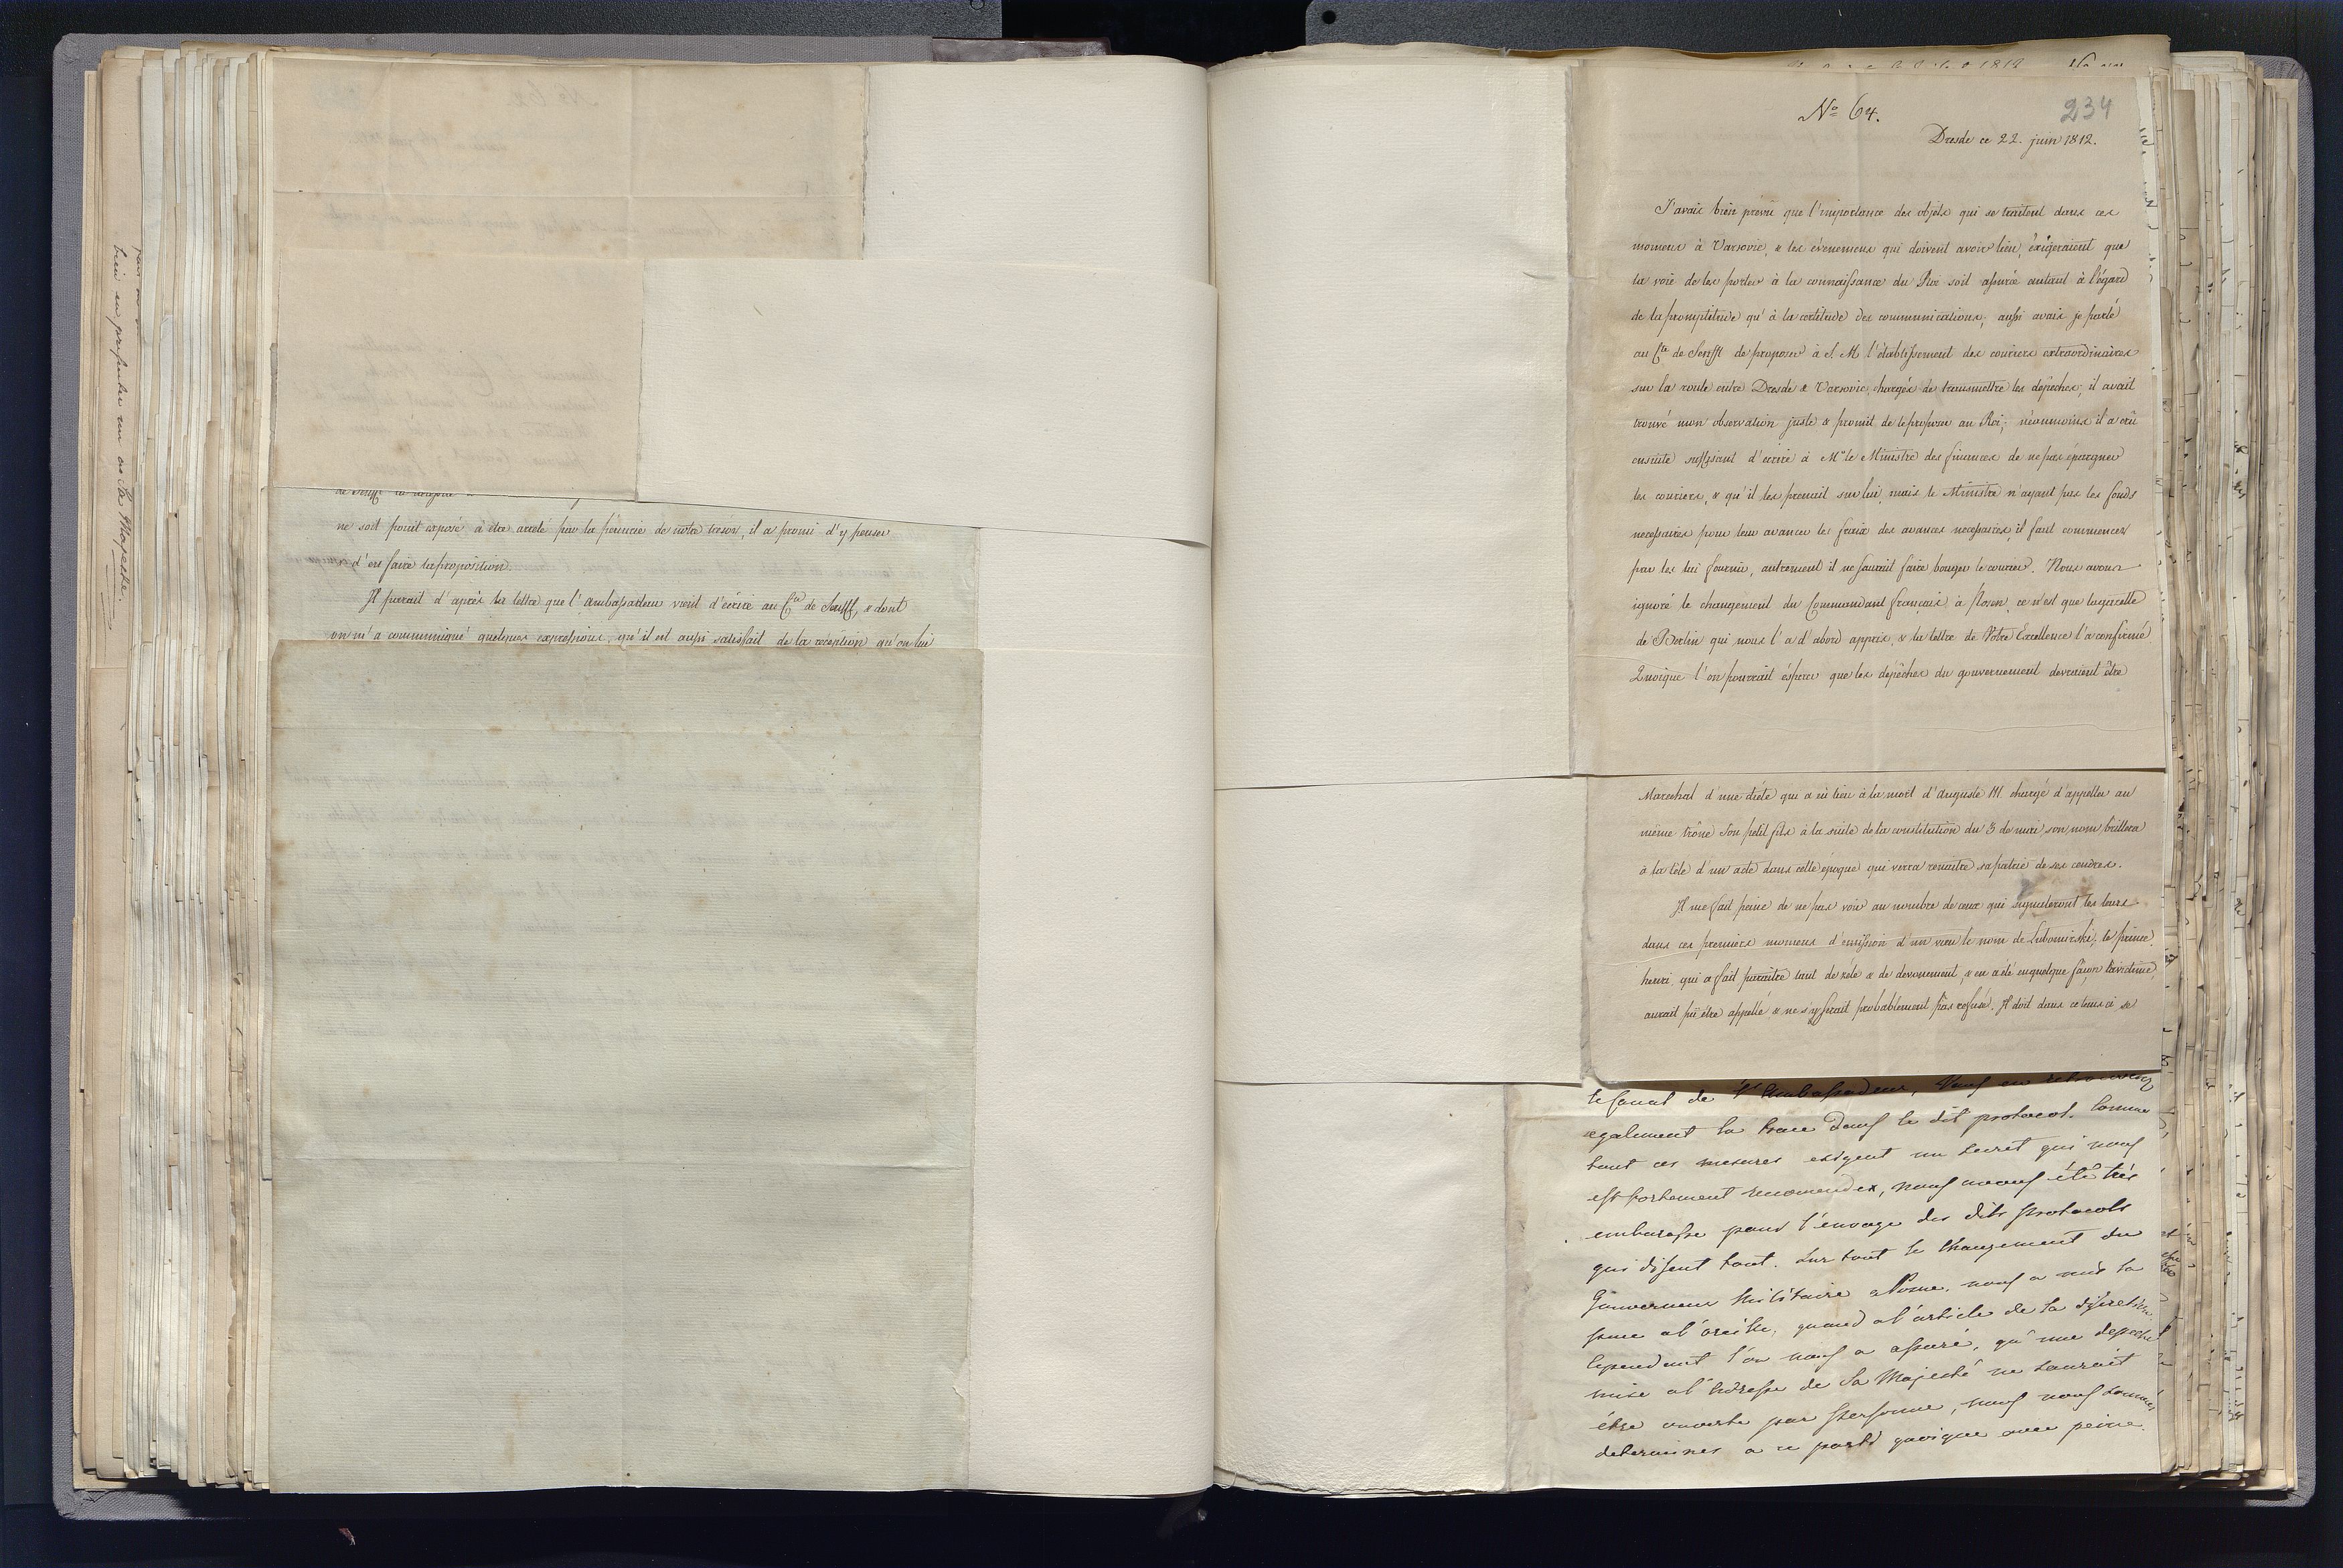 bien en présenter un au Sa Majesté.
ne soit point exposé à etre arreté par la pénurie de notre tresor, il a promi d'y penser
& d'en faire la proposition.
Il parait d'après la lettre que l'ambassadeur vient d'écrire au Cte de Senfft, & dont
on m'a communiqué quelques expressions, qu'il est aussi satisfait de la reception qu'on lui
No 64.
234
Dresde ce 22. juin 1812.
J'avais bien prevu que l'importance des objets qui se traitent dans ces
momens à Varsovie, & les évenemens qui doivent avoir lieu, éxigeraient que
la voie de les porter à la connaissance du Roi soit assurée autant à l'égard
de la promptitude qu'à la certitude des communications, aussi avais je parlé
au Cte de Senfft de proposer à S. M l'établissement des couriers extraordinaires
sur la route entre Dresde & Varsovie, chargés de transmettre les depeches; il avait
trouvé mon observation juste & promit de le proposer au Roi; néanmoins il a crû
ensuite suffisant d'ecrire à Mr le Ministre des finances de ne pas épargner
les couriers, & qu'il les prenait sur lui, mais le Ministre n'ayant pas les fonds
necessaires pour leur avancer les fraix des avances necessaires, il faut commencer
par les lui fournir, autrement il ne saurait faire bouger le courier. Nous avons
ignoré le changement du Commandant francais à Posen, ce n'est que la gazette
de Berlin qui nous l'a d'abord appris, & la lettre de Votre Excellence l'a confirmé
Quoique l'on pourrait éspérer que les depêches du gouvernement devraient être
Marechal d'une diète qui a eû lieu à la mort d'Auguste III chargé d'appeller au
même trône son petit fils à la suite de la constitution du 3 de mai, son nom brillera
à la tête d'un acte dans cette epoque qui verra renaitre sa patrie de ses cendres.
Il me fait peine de ne pas voir au nombre de ceux qui signaleront les leurs
dans ces premiers momens d'emission d'un voeu le nom de Lubomirski; le prince
henri, qui a fait paraitre tant de zéle & de devouement, & en a été en quelque façon la victime,
aurait pû être appellé & ne s'y serait probablement pas refusé. Il doit dans ce tems ci se
le fanal de l'Ambassadeur, Vous en retrouverez
egalement la trace dans le dit protocol. Comme
tout ces mesures exigent un secret qui nous
est fortement recomendex, nous avons été très
embarasse pour l'envoye des dits Protocols
qui disent tout. Sur tout le changement du
Gouverneur Militaire a Posne, nous a mis la
puce al'oreille, quand al'article de la discretion.
Cependant l'on nous a assuré, qu'une depeche
mise al'Adresse de Sa Majesté ne saurait
être ouverte par Personne, nous nous sommes
determines a ce parti quoique avec peine.